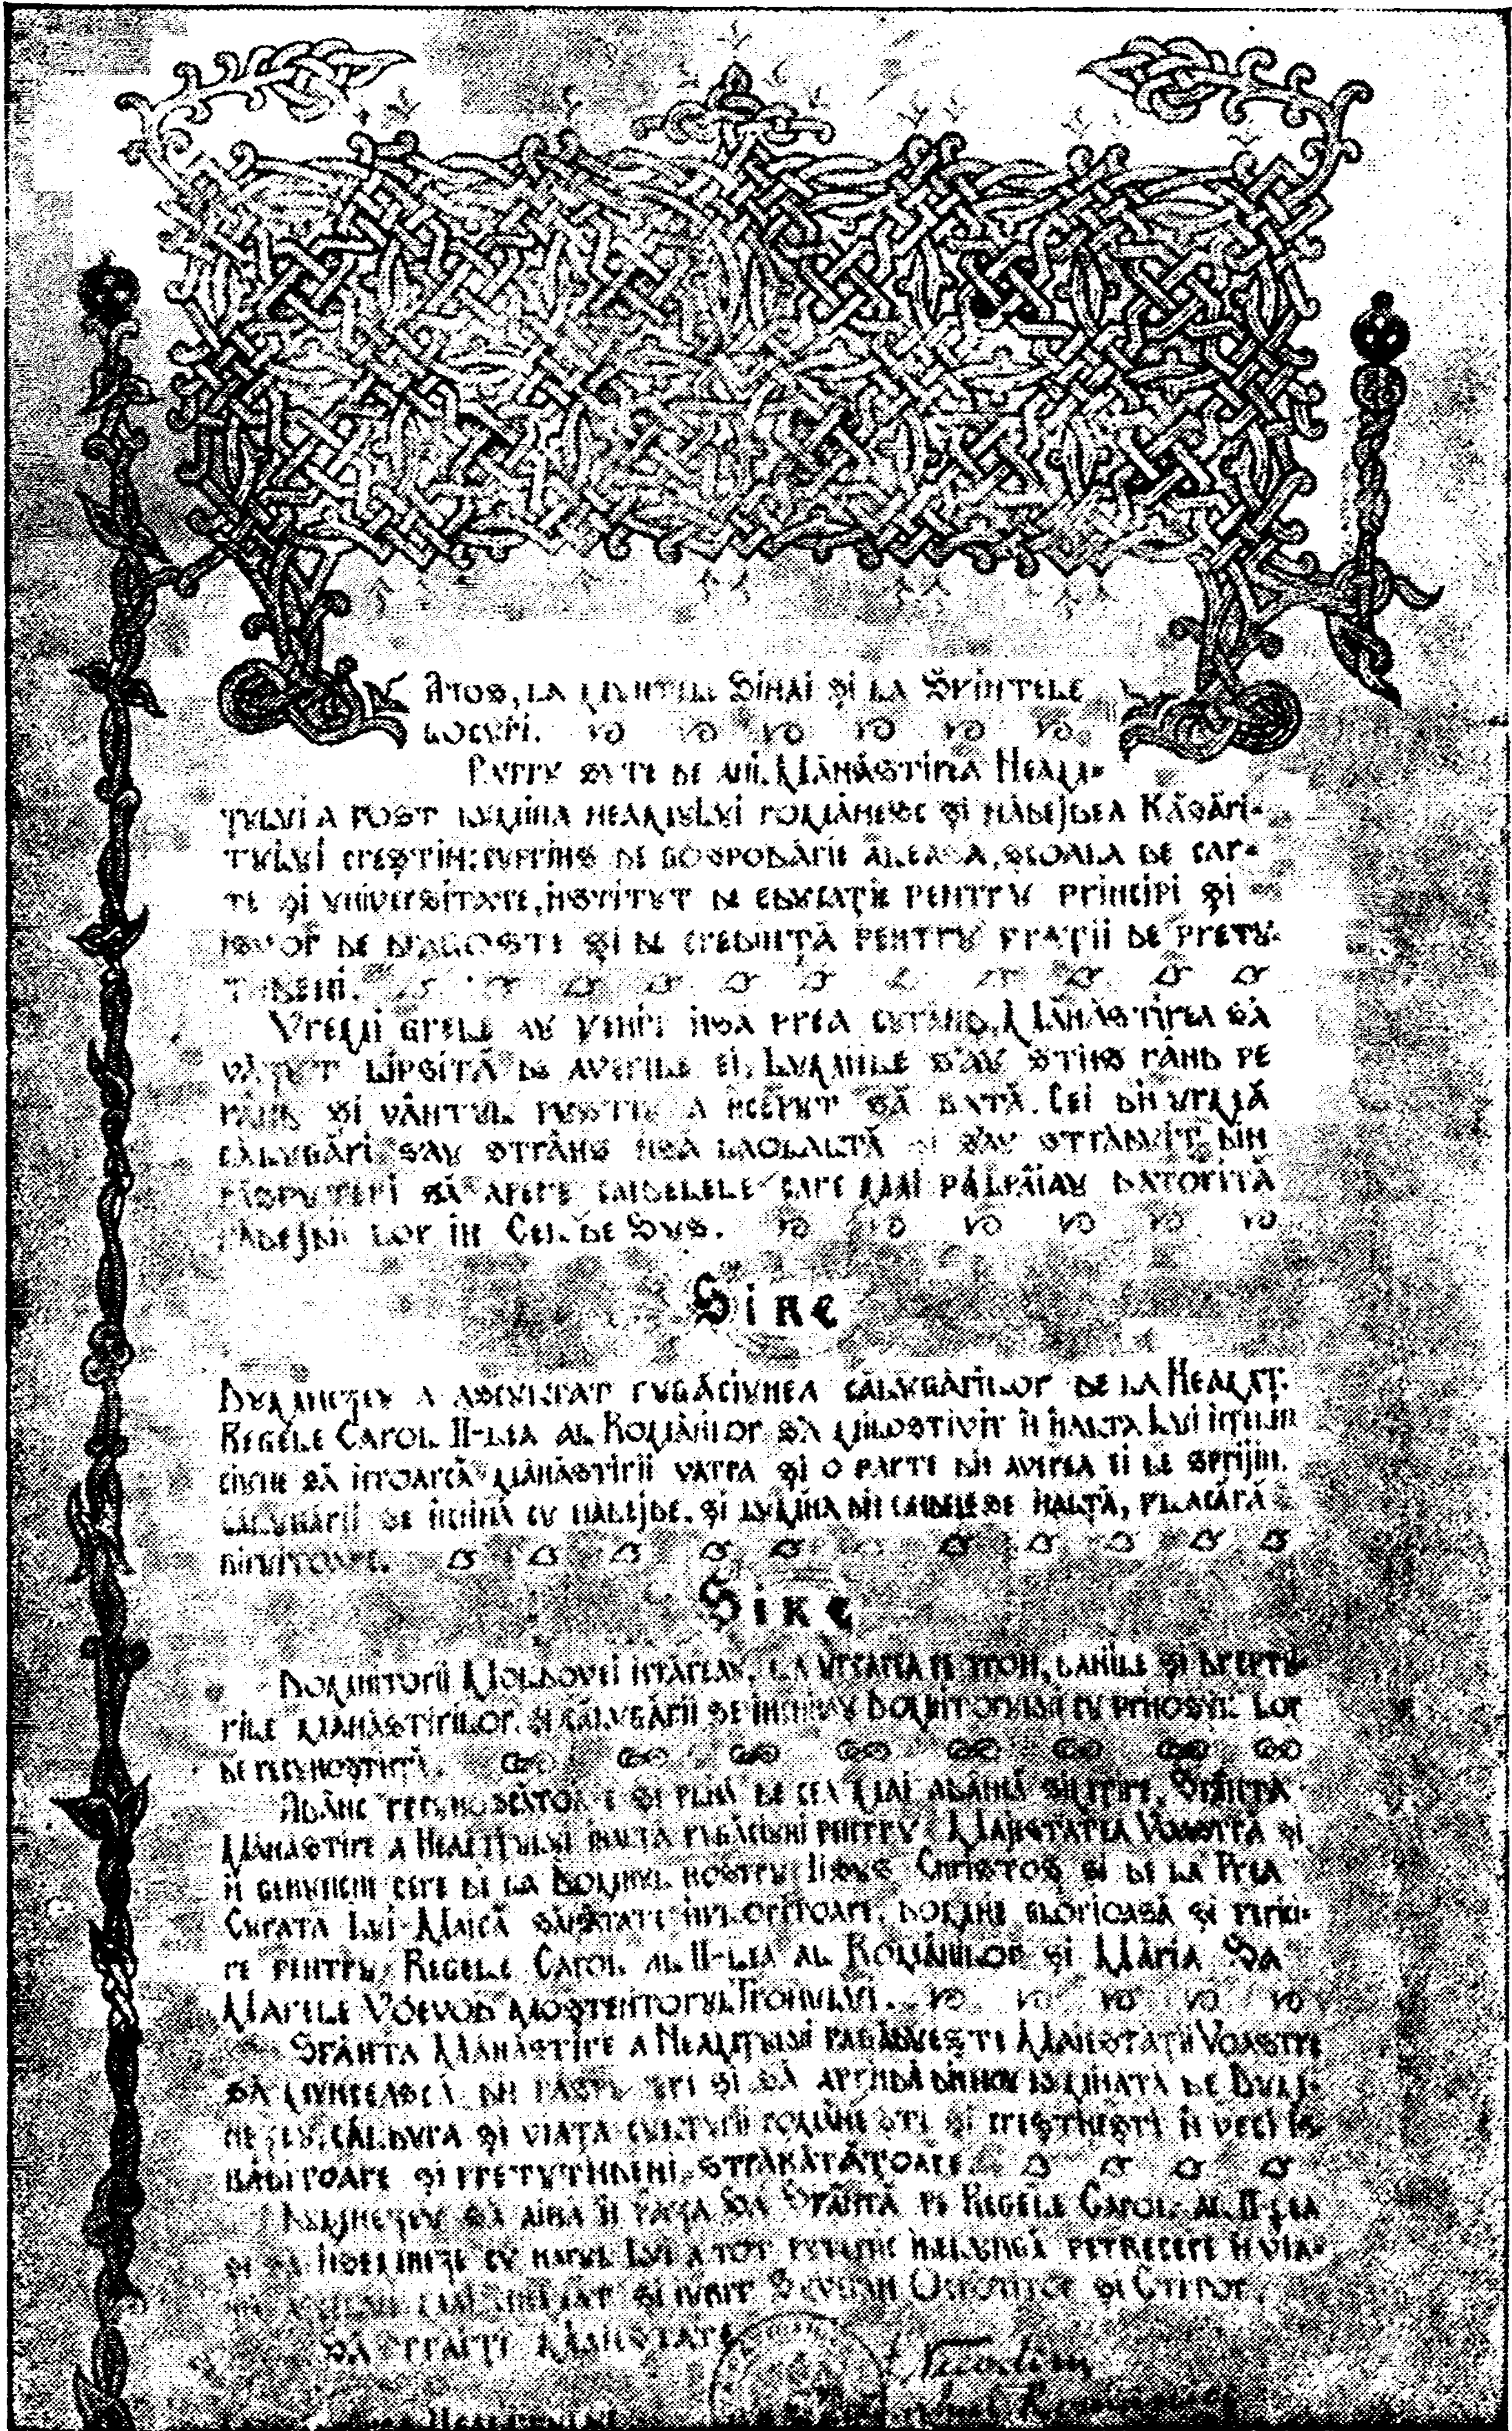 Atos, la Muntele Sinai și la Sfintele
Locuri.
Patru sute de ani, Mănăstirea Neam-
țului a fost lumina neamului românesc și nădejdea Răsări-
tului creștin: cuprins de gospodărie aleasă, școală de car-
te și universitate, institut de educație pentru principi și
isvor de dragoste și de credință pentru frații de pretu-
tindeni.
Vremi grele au venit însă prea curând. Mănăstirea s'a
văzut lipsită de averile ei. Luminile s'au stins rând pe
rând și vântul pustiu a început să bată. Cei din urmă
călugări s'au strâns însă laolaltă și s'au străduit din
răsputeri să apere candelele care mai pâlpâiau datorită
nădejdii lor în Cel de Sus.
Sire
Dumnezeu a ascultat rugăciunea călugărilor de la Neamț.
Regele Carol II-lea al Românilor s'a milostivit în înalta Lui
să întoarcă mănăstirii vatra și o parte din averea ei de sprijin.
Călugării se închină cu nădejde, și lumina din candele se înalță, flacără
Sire
Domnitorii Moldovei întăreau, la urcarea pe tron, daniile și dreptu-
rile mănăstirilor, și călugării se închinau Domnitorului cu prinosul lor
de recunoștință.
Adânc recunoscătoare și plină de cea mai adâncă smerire, Sfânta
Mănăstire a Neamțului înalță rugăciuni pentru Majestatea Voastră și
în genunchi cere de la Domnul nostru Iisus Christos și de la Prea
Curata Lui Maică sănătate înfloritoare, domnie glorioasă și ferici-
re pentru Regele Carol al II-lea al Românilor și Măria Sa
Marele Voevod Moștenitorul Tronului.
Sfânta Mănăstire a Neamțului făgăduește Majestății Voastre
să muncească din răsputeri și să aprindă din nou luminată de Dum-
nezeu, căldura și viața culturii românești și creștinești în veci is-
băvitoare și pretutindeni străbătătoare.
Dumnezeu să aibă în paza Sa Sfântă pe Regele Carol al II-lea
și să cu harul Lui a tot puternic îndelungă petrecere în via-
și iubit Suveran Ocrotitor și Ctitor.
Să trăiți Majestate